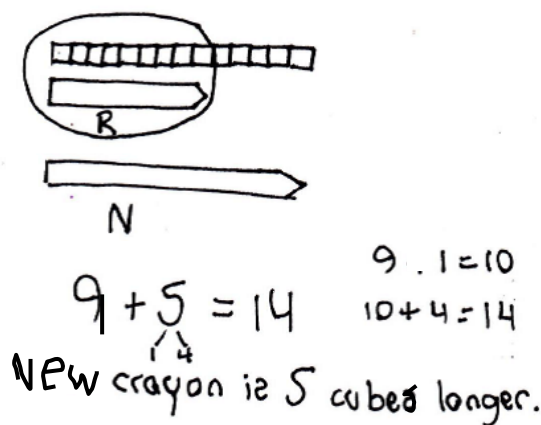 B
N
9 . 1 = 10
9 + 5 = 14
10 + 4 = 14
1 4
New crayon is 5 cubes longer.